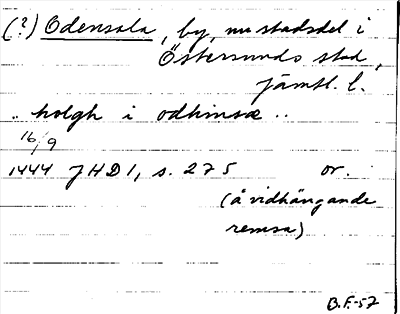 (?) Odensala, by, nu stadsdel i
Östersunds stad,
Jämtl. l.
.. holgh i odhinsæ ..
16/9
1444 JHD1, s. 275 or.
(å vidhängande
remsa)
B.F.-57